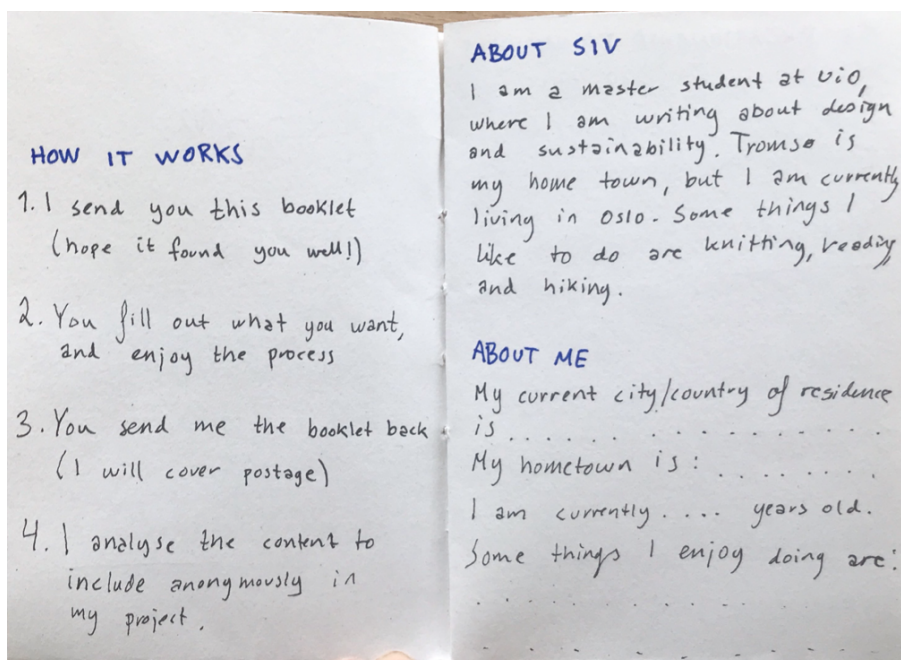 HOW IT WORKS
1. I send you this booklet
(hope it found you well!)
2. You fill out what you want,
and enjoy the process
3. You send me the booklet back
(I will cover postage)
4. I analyse the content to
include anonymously in
my project.
ABOUT SIV
I am a master student at UiO,
where I am writing about design
and sustainability. Tromsø is
my home town, but I am currently
living in Oslo. Some things I
like to do are knitting, reading,
and hiking.
ABOUT ME
My current city/country of residence
is . . . . . . . . . . . . . . . .
My hometown is: . . . . . . . .
I am currently . . . . years old.
Some things I enjoy doing are:
. . . . . . . . . . . . . . . .
. . . . . . . . . . . . . . . .